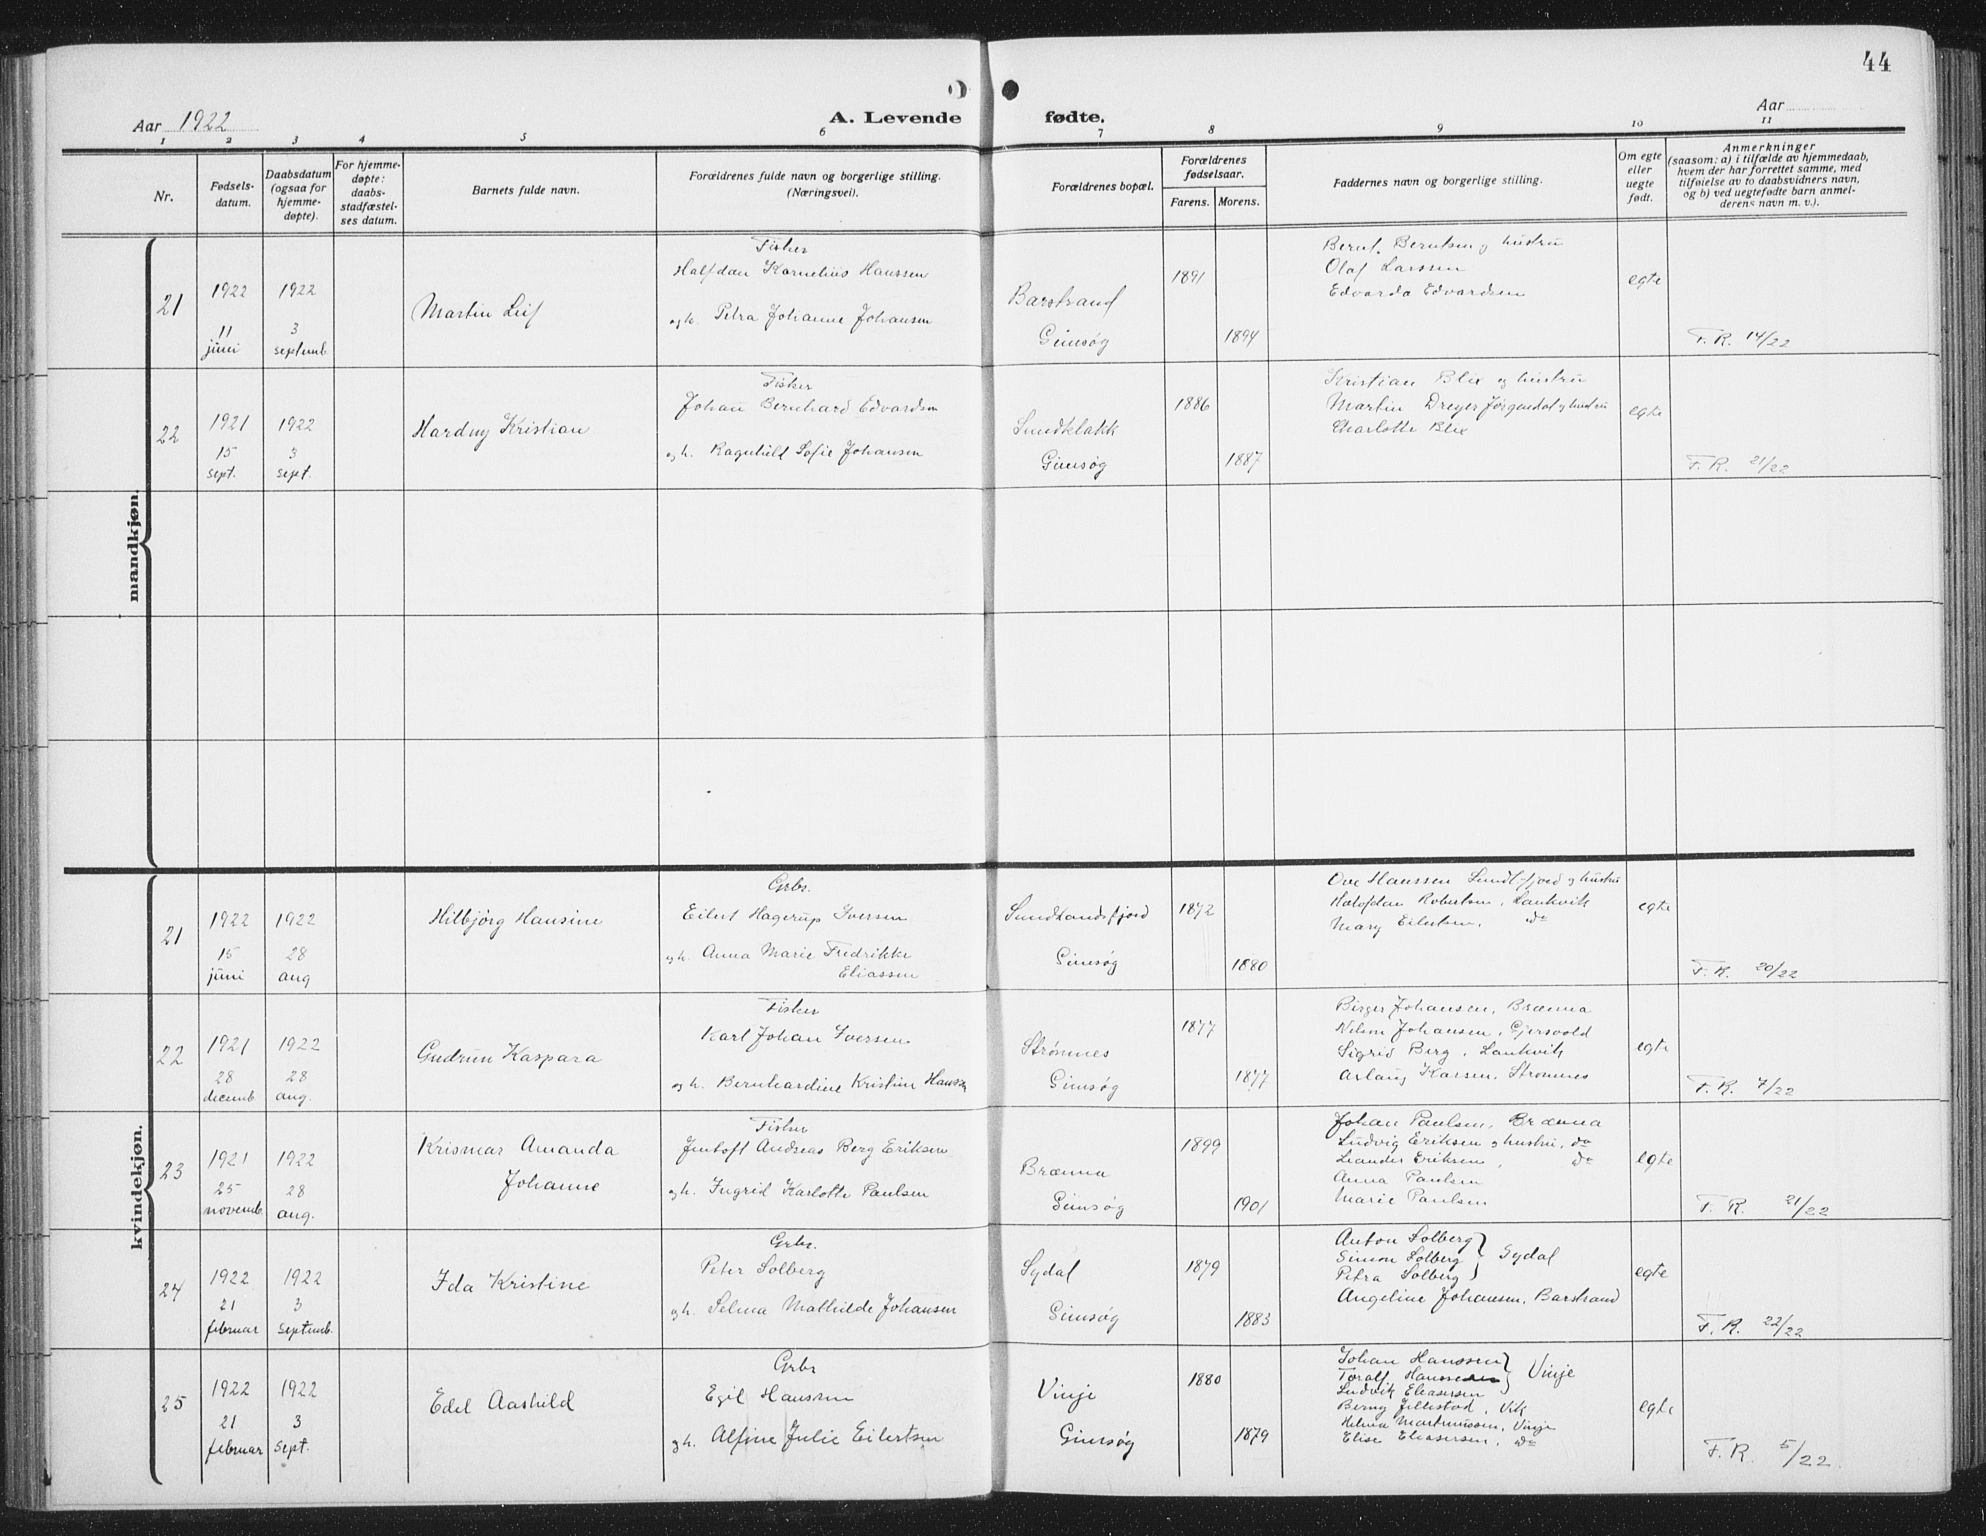 44
Aar 1922
A. Levende fødte.
Aar
1 2 3 4 5 6 7 8 9 10 11
Nr.
Fødsels-
datum.
Daabsdatum
(ogsaa for
hjemme-
døpte).
For hjemme-
døpte:
daabs-
stadfæstel-
ses datum.
Barnets fulde navn.
Forældrenes fulde navn og borgerlige stilling.
(Næringsvei).
Forældrenes bopæl.
Forældrenes
fødselsaar.
Farens. Morens.
Faddernes navn og borgerlige stilling.
Om egte
eller
uegte
født.
Anmerkninger
(saasom: a) i tilfælde av hjemmedaab,
hvem der har forrettet samme, med
tilføielse av to daabsvidners navn,
og b) ved uegtefødte barn anmel-
derens navn m. v.).
mandkjøn.
21
1922
11
juni
1922
3
septemb.
Martin Leif
Fisker
Halfdan Kornelius Hanssen
og h. Petra Johanne Johansen
Barstrand
Gimsøg
1891
1894
Bernt Berntsen og hustru
Olaf Larssen
Edvarda Edvardsen
egte
F. R. 14/22
22
1921
15
sept.
1922
3
sept.
Hardny Kristian
Fisker
Johan Bernhard Edvardsen
og h. Ragnhild Sofie Johansen
Sundklakk
Gimsøg
1886
1887
Kristian Blix og hustru
Martin Dreyer Jørgendal og hustru
Charlotte Blix
egte
F. R. 21/22
kvindekjøn.
21
1922
15
juni
1922
28
aug
Hilbjørg Hansine
Grbr.
Eilert Hagerup Iversen
og h. Anna Marie Fredrikke
Eliassen
Sundlandsfjord
Gimsøg
1872
1880
Ove Hanssen Sundl-fjord og hustru
Halfdan Robertsen, Lankvik
Mary Eilertsen, do
egte
F. R. 20/22
22
1921
28
decemb
1922
28
aug.
Gudrun Kaspara
Fisker
Karl Johan Iversen
og h. Bernhardine Kristine Hanssen
Strømnes
Gimsøg
1877
1877
Birger Johansen, Brænna
Nelson Johansen, Gjersvold
Sigrid Berg, Lankvik
Aslaug Karsen, Strømnes
egte
F. R. 7/22
23
1921
25
novemb.
1922
28
aug.
Krismar Amanda
Johanne
Fisker
Jentoft Andreas Berg Eriksen
og h. Ingrid Karlotte Paulsen
Brænna
Gimsøg
1899
1901
Johan Paulsen, Brænna
Ludvig Eriksen og hustru, do
Leander Eriksen, do
Anna Paulsen
Marie Paulsen
egte
F. R. 21/22
24
1922
21
februar
1922
3
septemb.
Ida Kristine
Grbr.
Peter Solberg
og h. Selma Mathilde Johansen
Sydal
Gimsøg
1879
1883
Anton Solberg
Simon Solberg } Sydal
Petra Solberg
Angeline Johansen, Barstrand
egte
F. R. 22/22
25
1922
21
februar
1922
3
sept.
Edel Aashild
Grbr
Egil Hanssen
og h. Alfine Julie Eilertsen
Vinje
Gimsøg
1880
1879
Johan Hanssen
Toralf Hanssen } Vinje
Ludvik Eliasersen
Berny Jillestad, Vik
Helma Martinussen, Vinje
Elise Eliasersen, do
egte
F. R. 5/22.